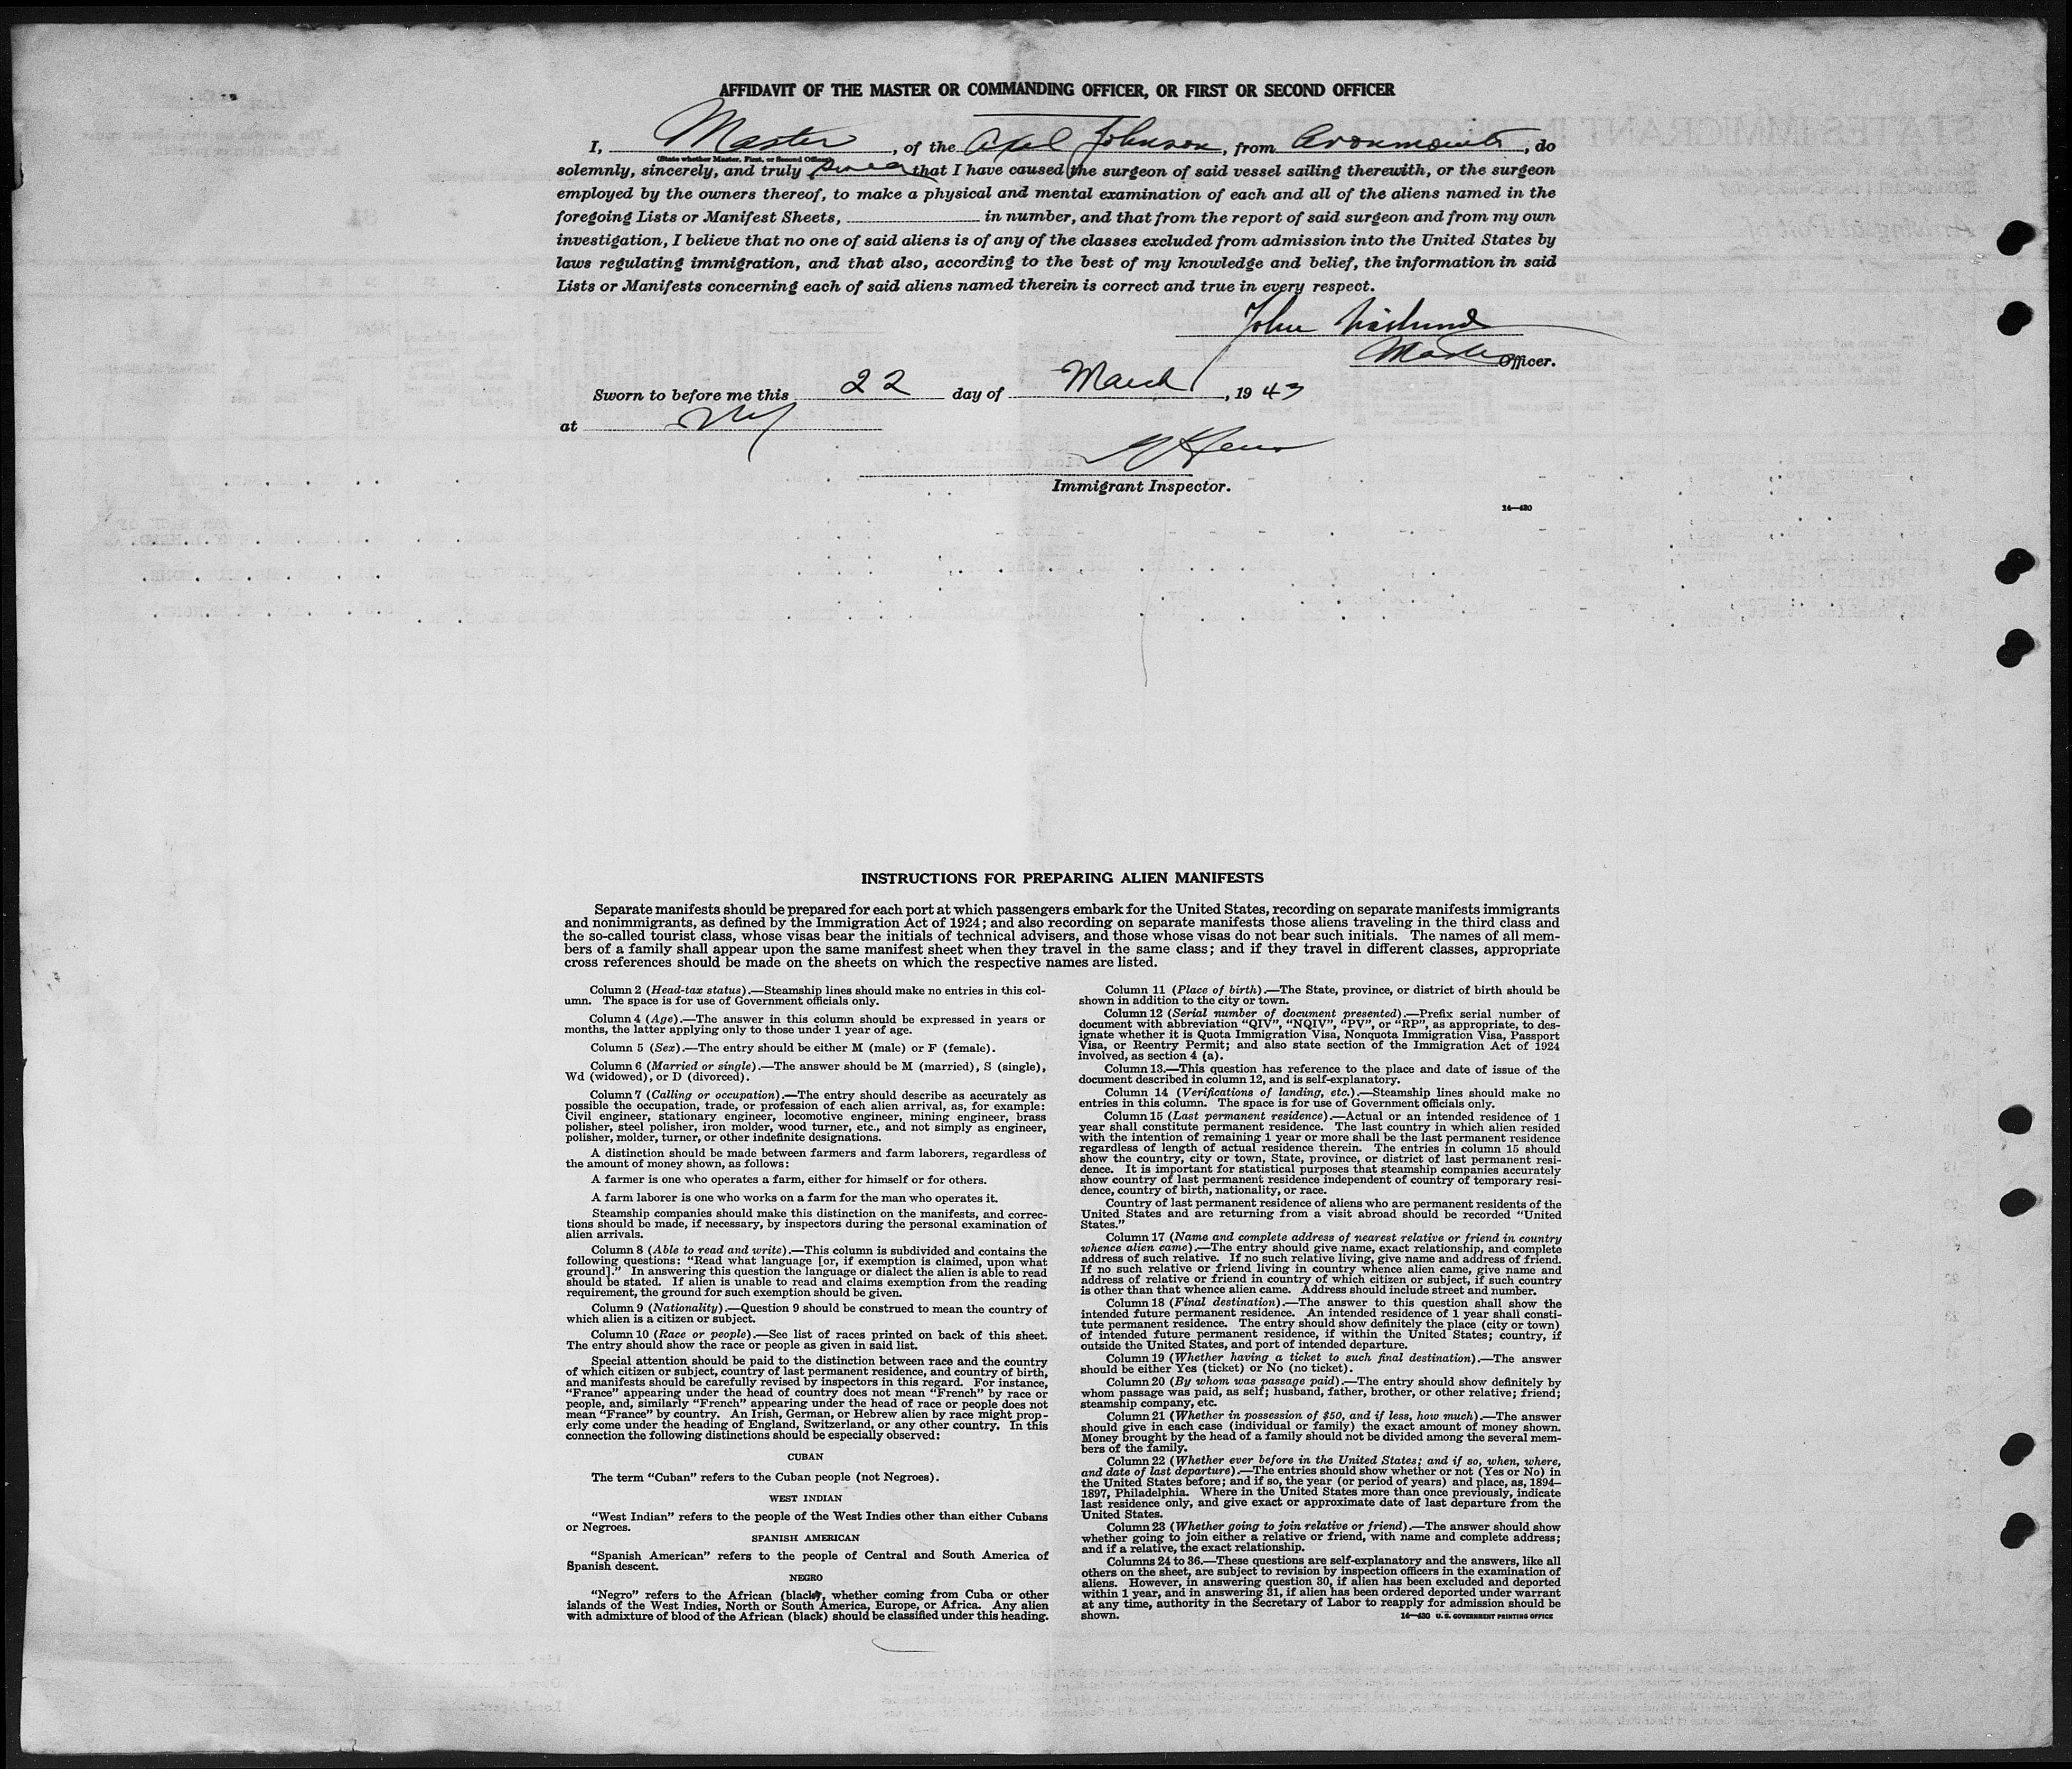 AFFIDAVIT OF THE MASTER OR COMMANDING OFFICER, OR FIRST OR SECOND OFFICER
I, Master, of the Axel Johnson, from Avonmouth, do
(State whether Master, First, or Second Officer)
solemnly, sincerely, and truly swear that I have caused the surgeon of said vessel sailing therewith, or the surgeon
employed by the owners thereof, to make a physical and mental examination of each and all of the aliens named in the
foregoing Lists or Manifest Sheets, in number, and that from the report of said surgeon and from my own
investigation, I believe that no one of said aliens is of any of the classes excluded from admission into the United States by
laws regulating immigration, and that also, according to the best of my knowledge and belief, the information in said
Lists or Manifests concerning each of said aliens named therein is correct and true in every respect.
John
Master Officer.
Sworn to before me this 22 day of March, 1943
at NY
Immigrant Inspector.
14—430
INSTRUCTIONS FOR PREPARING ALIEN MANIFESTS
Separate manifests should be prepared for each port at which passengers embark for the United States, recording on separate manifests immigrants
and nonimmigrants, as defined by the Immigration Act of 1924; and also recording on separate manifests those aliens traveling in the third class and
the so-called tourist class, whose visas bear the initials of technical advisers, and those whose visas do not bear such initials. The names of all mem-
bers of a family shall appear upon the same manifest sheet when they travel in the same class; and if they travel in different classes, appropriate
cross references should be made on the sheets on which the respective names are listed.
Column 2 (Head-tax status).—Steamship lines should make no entries in this col-
umn. The space is for use of Government officials only.
Column 4 (Age).—The answer in this column should be expressed in years or
months, the latter applying only to those under 1 year of age.
Column 5 (Sex).—The entry should be either M (male) or F (female).
Column 6 (Married or single).—The answer should be M (married), S (single),
Wd (widowed), or D (divorced).
Column 7 (Calling or occupation).—The entry should describe as accurately as
possible the occupation, trade, or profession of each alien arrival, as, for example:
Civil engineer, stationary engineer, locomotive engineer, mining engineer, brass
polisher, steel polisher, iron molder, wood turner, etc., and not simply as engineer,
polisher, molder, turner, or other indefinite designations.
A distinction should be made between farmers and farm laborers, regardless of
the amount of money shown, as follows:
A farmer is one who operates a farm, either for himself or for others.
A farm laborer is one who works on a farm for the man who operates it.
Steamship companies should make this distinction on the manifests, and correc-
tions should be made, if necessary, by inspectors during the personal examination of
alien arrivals.
Column 8 (Able to read and write).—This column is subdivided and contains the
following questions: "Read what language [or, if exemption is claimed, upon what
ground]." In answering this question the language or dialect the alien is able to read
should be stated. If alien is unable to read and claims exemption from the reading
requirement, the ground for such exemption should be given.
Column 9 (Nationality).—Question 9 should be construed to mean the country of
which alien is a citizen or subject.
Column 10 (Race or people).—See list of races printed on back of this sheet.
The entry should show the race or people as given in said list.
Special attention should be paid to the distinction between race and the country
of which citizen or subject, country of last permanent residence, and country of birth,
and manifests should be carefully revised by inspectors in this regard. For instance,
"France" appearing under the head of country does not mean "French" by race or
people, and, similarly "French" appearing under the head of race or people does not
mean "France" by country. An Irish, German, or Hebrew alien by race might prop-
erly come under the heading of England, Switzerland, or any other country. In this
connection the following distinctions should be especially observed:
CUBAN
The term "Cuban" refers to the Cuban people (not Negroes).
WEST INDIAN
"West Indian" refers to the people of the West Indies other than either Cubans
or Negroes.
SPANISH AMERICAN
"Spanish American" refers to the people of Central and South America of
Spanish descent.
NEGRO
"Negro" refers to the African (black), whether coming from Cuba or other
islands of the West Indies, North or South America, Europe, or Africa. Any alien
with admixture of blood of the African (black) should be classified under this heading.
Column 11 (Place of birth).—The State, province, or district of birth should be
shown in addition to the city or town.
Column 12 (Serial number of document presented).—Prefix serial number of
document with abbreviation "QIV", "NQIV", "PV", or "RP", as appropriate, to des-
ignate whether it is Quota Immigration Visa, Nonquota Immigration Visa, Passport
Visa, or Reentry Permit; and also state section of the Immigration Act of 1924
involved, as section 4 (a).
Column 13.—This question has reference to the place and date of issue of the
document described in column 12, and is self-explanatory.
Column 14 (Verifications of landing, etc.).—Steamship lines should make no
entries in this column. The space is for use of Government officials only.
Column 15 (Last permanent residence).—Actual or an intended residence of 1
year shall constitute permanent residence. The last country in which alien resided
with the intention of remaining 1 year or more shall be the last permanent residence
regardless of length of actual residence therein. The entries in column 15 should
show the country, city or town, State, province, or district of last permanent resi-
dence. It is important for statistical purposes that steamship companies accurately
show country of last permanent residence independent of country of temporary resi-
dence, country of birth, nationality, or race.
Country of last permanent residence of aliens who are permanent residents of the
United States and are returning from a visit abroad should be recorded "United
States."
Column 17 (Name and complete address of nearest relative or friend in country
whence alien came).—The entry should give name, exact relationship, and complete
address of such relative. If no such relative living, give name and address of friend.
If no such relative or friend living in country whence alien came, give name and
address of relative or friend in country of which citizen or subject, if such country
is other than that whence alien came. Address should include street and number.
Column 18 (Final destination).—The answer to this question shall show the
intended future permanent residence. An intended residence of 1 year shall consti-
tute permanent residence. The entry should show definitely the place (city or town)
of intended future permanent residence, if within the United States; country, if
outside the United States, and port of intended departure.
Column 19 (Whether having a ticket to such final destination).—The answer
should be either Yes (ticket) or No (no ticket).
Column 20 (By whom was passage paid).—The entry should show definitely by
whom passage was paid, as self; husband, father, brother, or other relative; friend;
steamship company, etc.
Column 21 (Whether in possession of $50, and if less, how much).—The answer
should give in each case (individual or family) the exact amount of money shown.
Money brought by the head of a family should not be divided among the several mem-
bers of the family.
Column 22 (Whether ever before in the United States; and if so, when, where,
and date of last departure).—The entries should show whether or not (Yes or No) in
the United States before; and if so, the year (or period of years) and place, as, 1894–
1897, Philadelphia. Where in the United States more than once previously, indicate
last residence only, and give exact or approximate date of last departure from the
United States.
Column 23 (Whether going to join relative or friend).—The answer should show
whether going to join either a relative or friend, with name and complete address;
and if a relative, the exact relationship.
Columns 24 to 36.—These questions are self-explanatory and the answers, like all
others on the sheet, are subject to revision by inspection officers in the examination of
aliens. However, in answering question 30, if alien has been excluded and deported
within 1 year, and in answering 31, if alien has been ordered deported under warrant
at any time, authority in the Secretary of Labor to reapply for admission should be
shown.
14—430 U. S. GOVERNMENT PRINTING OFFICE